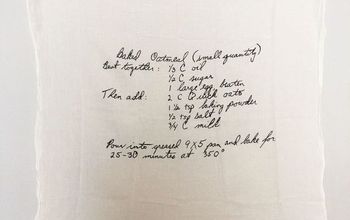 Baked Oatmeal (small quantity)
Beat together: 1/3 C oil
1/2 C sugar
1 large egg beaten
Then add: 2 C Quick oats
1 1/2 tsp baking powder
1/2 tsp salt
3/4 C milk
Pour into greased 9x5 pan and bake for
25-30 minutes at 350°